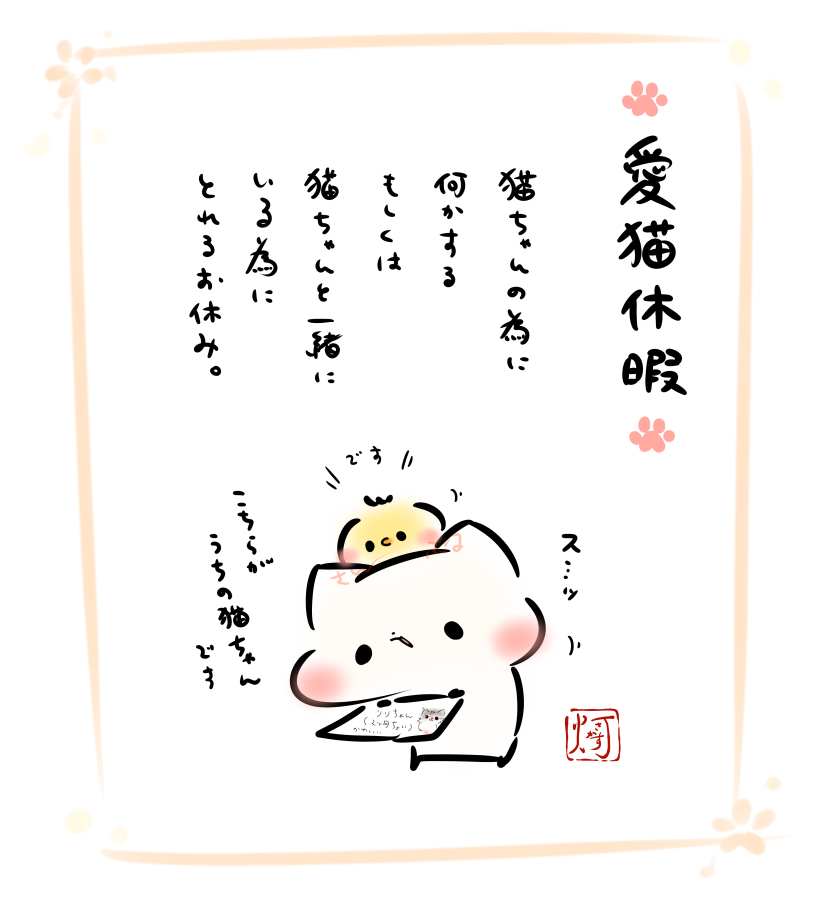 愛猫休暇
猫ちゃんの為に
何かする
もしくは
猫ちゃんと一緒に
いる為に
とれるお休み。
です
ス…ッ
こちらが
うちの猫ちゃん
です
リリちゃん
かわいい